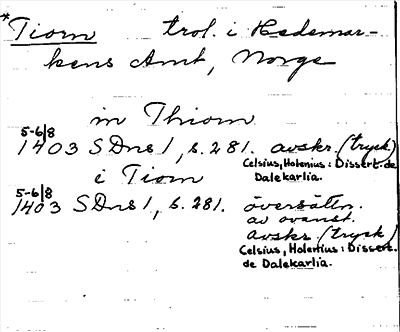 *Tiorn trol. i Hedemar-
kens Amt, Norge
in Thiorn
5-6/8
1403 SDns 1, s. 281. avskr. (tryck)
Celsius, Holenius: Dissert. de
Dalekarlia.
i Tiorn
5-6/8
1403 SDns 1, s. 281. översättn.
av ovanst.
avskr. (tryck)
Celsius, Holenius: Dissert.
de Dalekarlia.